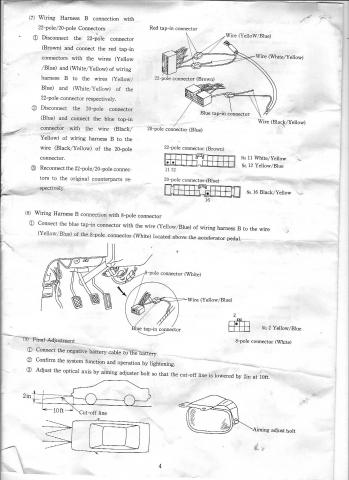 (7) Wiring Harness B connection with
22-pole/20-pole Connectors
① Disconnect the 22-pole connector
(Brown) and connect the red tap-in
connectors with the wires (Yellow
/Blue) and (White/Yellow) of wiring
harness B to the wires (Yellow/
Blue) and (White/Yellow) of the
22-pole connector respectively.
② Disconnect the 20-pole connector
(Blue) and connect the blue tap-in
connector with the wire (Black/
Yellow) of wiring harness B to the
wire (Black/Yellow) of the 20-pole
connector.
③ Reconnect the 22-pole/20-pole connec-
tors to the original counterparts re-
spectively.
Red tap-in connector
Wire (Yellow/Blue)
Wire (White/Yellow)
22-pole connector (Brown)
Blue tap-in connector
Wire (Black/Yellow)
20-pole connector (Blue)
22-pole connector (Brown)
№ 11 White/Yellow
№ 12 Yellow/Blue
11 12
20-pole connector (Blue)
№ 16 Black/Yellow
16
(8) Wiring Harness B connection with 8-pole connector
① Connect the blue tap-in connector with the wire (Yellow/Blue) of wiring harness B to the wire
(Yellow/Blue) of the 8-pole connector (White) located above the accelerator pedal.
8-pole connector (White)
Wire (Yellow/Blue)
Blue tap-in connector
2
№ 2 Yellow/Blue
8-pole connector (White)
(9) Final Adjustment
① Connect the negative battery cable to the battery.
② Confirm the system function and operation by lightening.
③ Adjust the optical axis by aiming adjuster bolt so that the cut-off line is lowered by 2in at 10ft.
2in
10ft
Cut-off line
Aiming adjust bolt
4